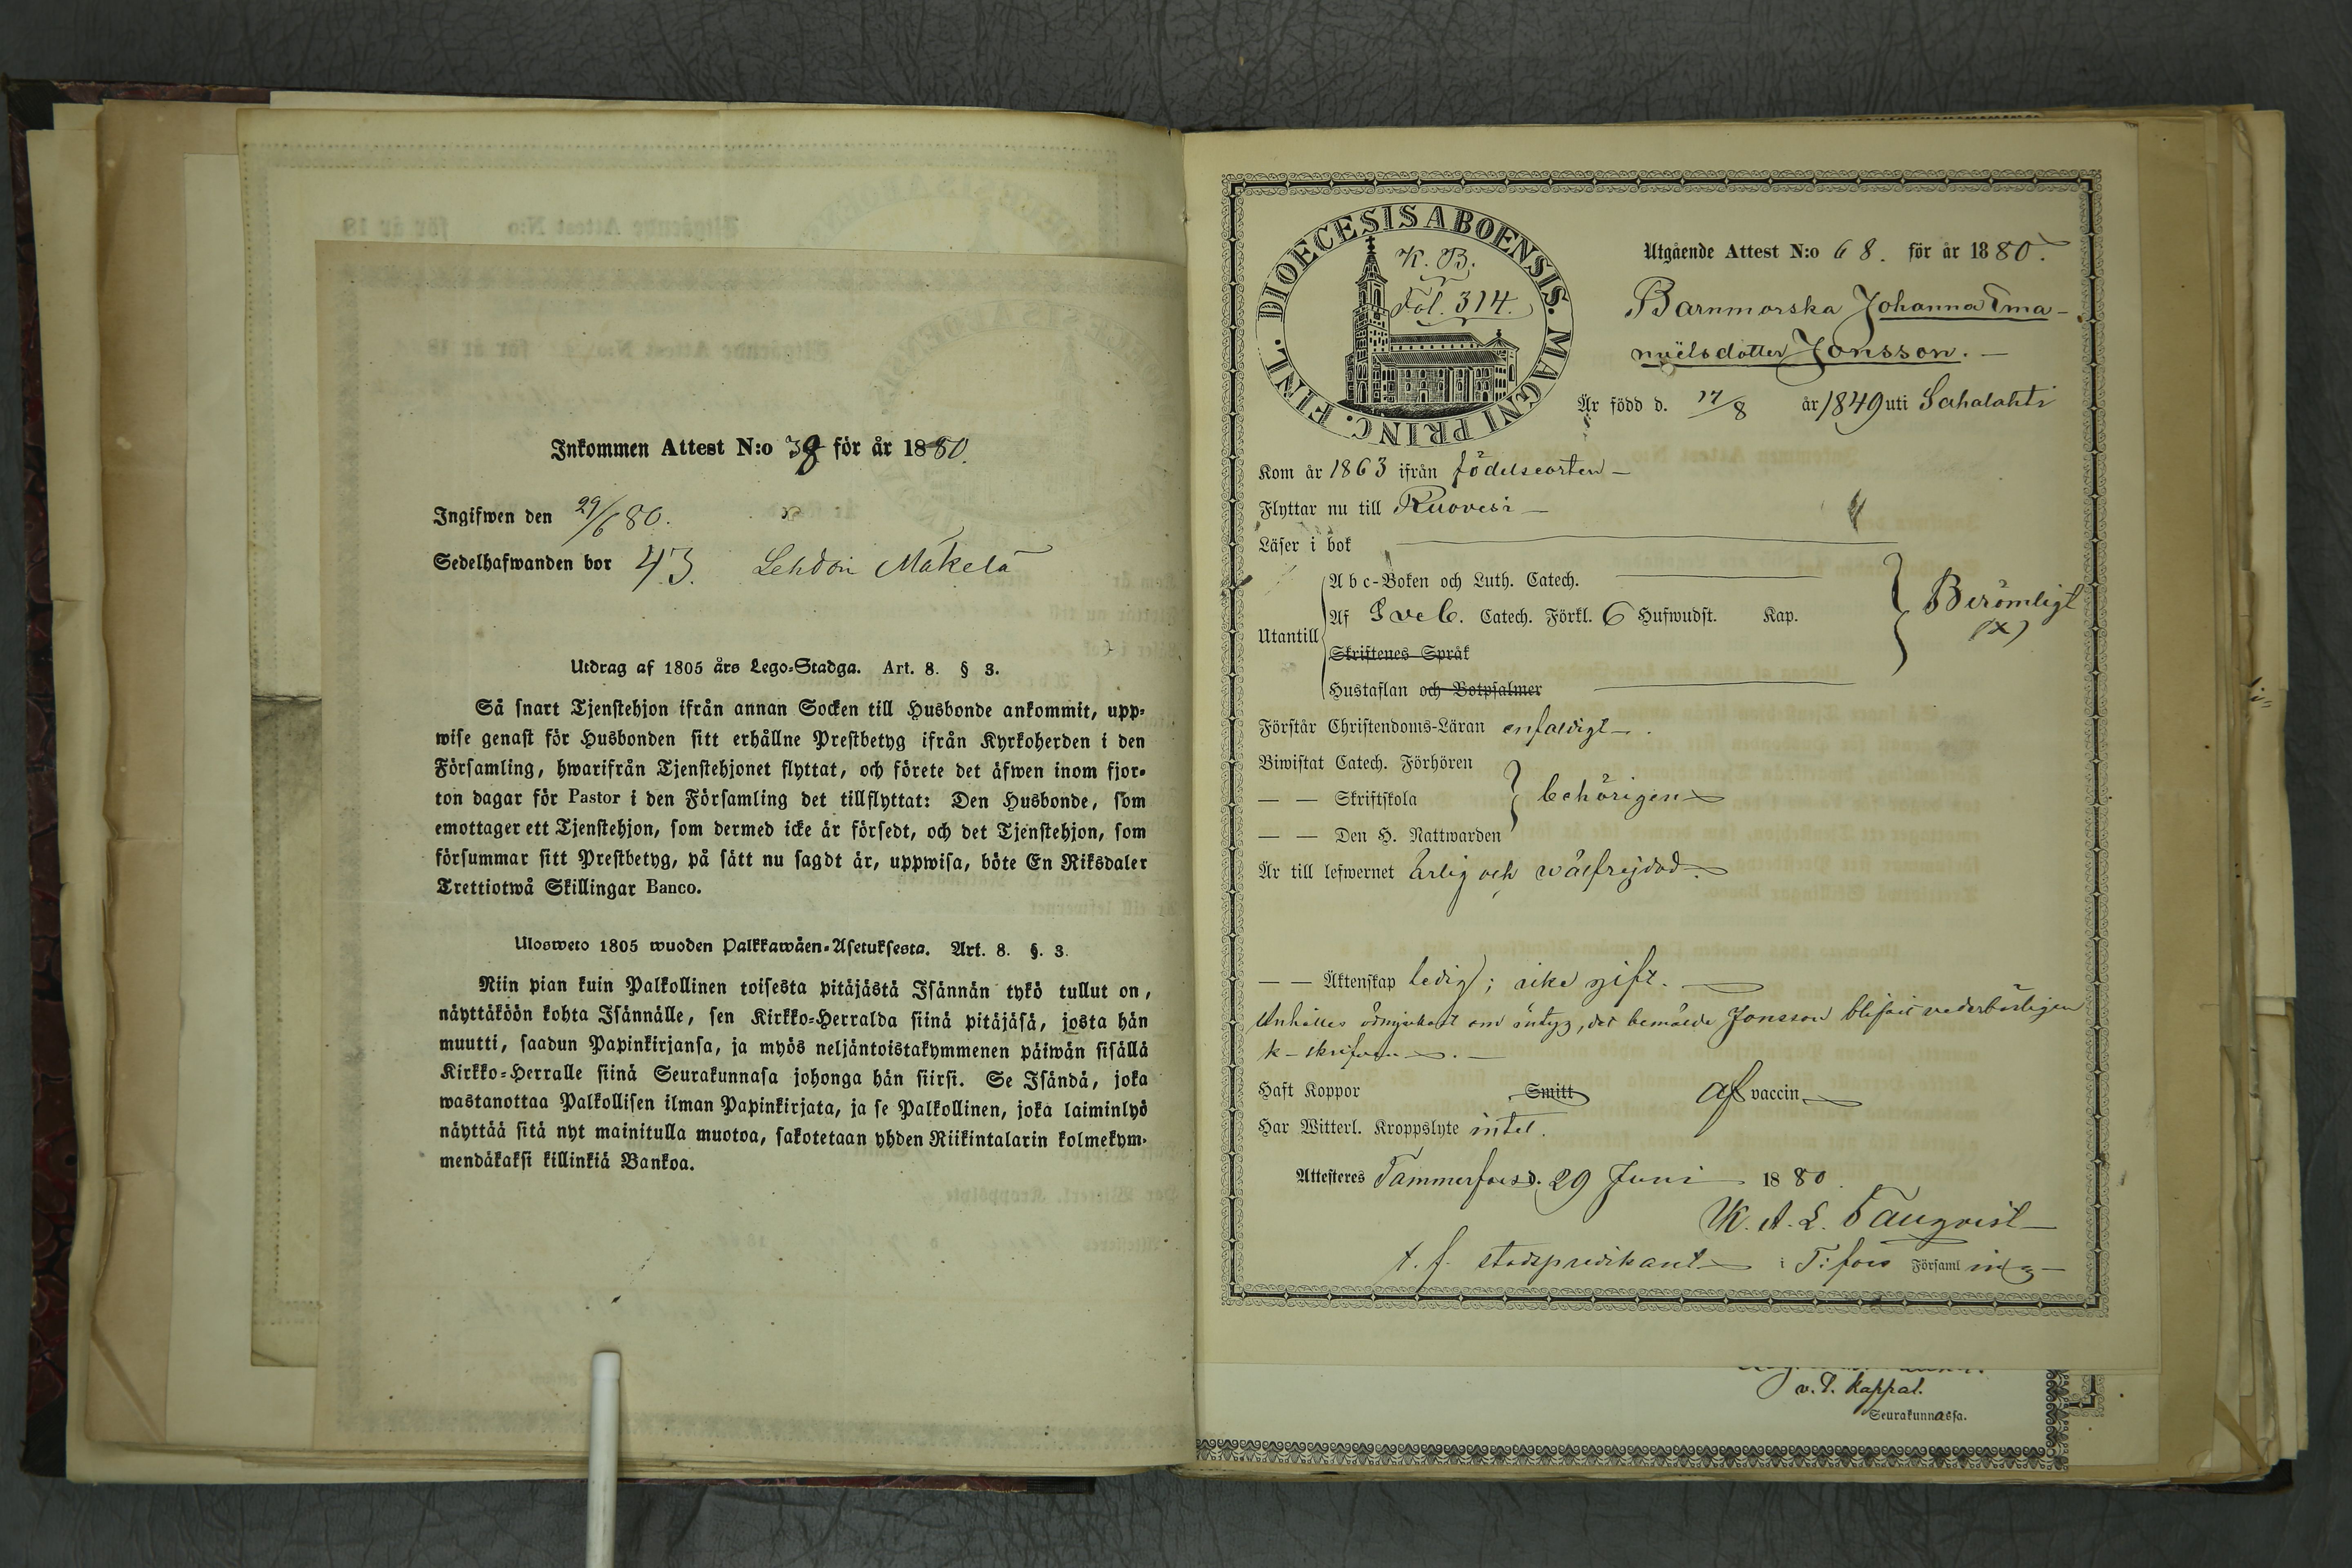 Inkommen Attest N:o 38 för år 1880.
Ingifwen den 29/6 80.
Sedelhafwanden bor 43. Lehdon Mäkelä
Utdrag af 1805 års Lego-Stadga. Art. 8. § 3.
Så snart Tjenstehjon ifrån annan Socken till Husbonde ankommit, upp-
wise genast för Husbonden sitt erhållne Prestbetyg ifrån Kyrkoherden i den
Församling, hwarifrån Tjenstehjonet flyttat, och förete det äfwen inom fjor-
ton dagar för Pastor i den Församling det tillflyttat: Den Husbonde, som
emottager ett Tjenstehjon, som dermed icke är försedt, och det Tjenstehjon, som
försummar sitt Prestbetyg, på sätt nu sagdt är, uppwisa, böte En Riksdaler
Trettiotwå Skillingar Banco.
Ulosweto 1805 wuoden Palkkawäen-Asetuksesta. Art. 8. §. 3.
Niin pian kuin Palkollinen toisesta pitäjästä Isännän tykö tullut on,
näyttäköön kohta Isännälle, sen Kirkko-Herralda siinä pitäjäsä, josta hän
muutti, saadun Papinkirjansa, ja myös neljäntoistakymmenen päiwän sisällä
Kirkko-Herralle siinä Seurakunnasa johonga hän siirsi. Se Isändä, joka
wastanottaa Palkollisen ilman Papinkirjata, ja se Palkollinen, joka laiminlyö
näyttää sitä nyt mainitulla muotoa, sakotetaan yhden Riikintalarin kolmekym-
mendäkaksi killinkiä Bankoa.
DIOECESIS ABOENSIS. MAGNI PRINC. FINL.
K. B.
Fol. 314.
Utgående Attest N:o 68. för år 1880.
Barnmorska Johanna Ema-
nuëlsdotter Jonsson.
Är född d. 17/8 år 1849 uti Sahalahti
Kom år 1863 ifrån födelseorten
Flyttar nu till Ruovesi
Läser i bok
Utantill
Abc-Boken och Luth. Catech.
Af Sveb. Catech. Förkl. 6 Hufwudst. Kap.
Skriftenes Språk
Hustaflan och Botpsalmer
Berömligt
(x)
Förstår Christendoms-Läran enfaldigt
Biwistat Catech. Förhören
— — Skriftskola
behörigen
— — Den H. Nattwarden
Är till lefwernet ärlig och wälfrejdad.
— — Äktenskap ledig; icke gift.
Anhålles ödmjukast om intyg, det bemälde Jonsson blifvit vederbörligen
k-skrifven.
Haft Koppor Smitt af vaccin
Har Witterl. Kroppslyte intet.
Attesteres Tammerfors d. 29 Juni 1880.
K. A. L.
t. f. stadspredikant i T:fors Församling
v. P. kappal.
Seurakunnassa.